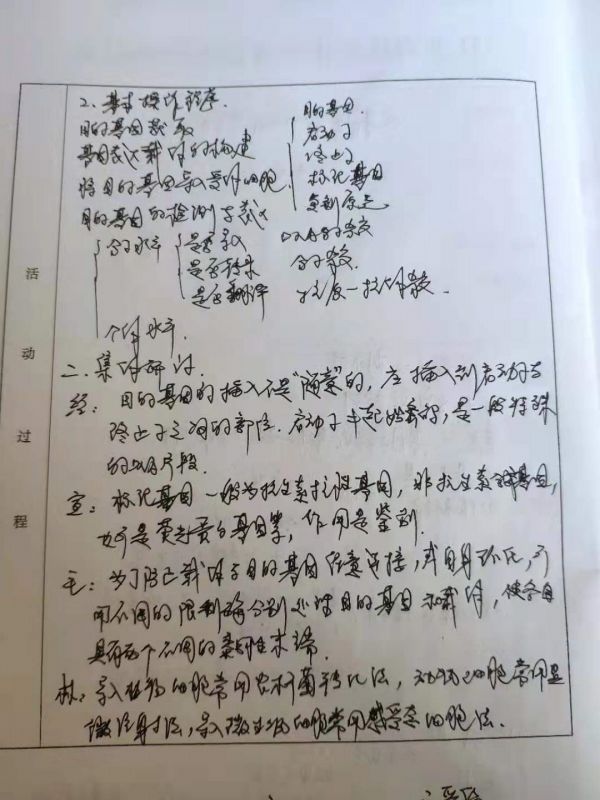 活动过程
2、基本操作程序.
目的基因获取
基因表达载体的构建
目的基因
启动子
终止子
标记基因
复制原点
将目的基因导入受体细胞.
目的基因的检测与表达
分子水平
是否导入 DNA分子杂交
是否转录 分子杂交.
是否翻译 抗原—抗体杂交.
个体水平.
二、集体研讨.
经：目的基因的插入不是“随意”的，应插入到启动子与
终止子之间的部位.启动子非起始密码，是一段特殊
的DNA片段.
宣：标记基因一般为抗生素抗性基因，非抗生素基因，
也可是荧光蛋白基因等，作用是鉴别.
毛：为了防止载体与目的基因任意连接，或自身环化，可
用不同的限制酶分别处理目的基因和载体，使各自
具有两个不同的黏性末端.
林：导入植物细胞常用农杆菌转化法，动物细胞常用显
微注射法，导入微生物细胞常用感受态细胞法.